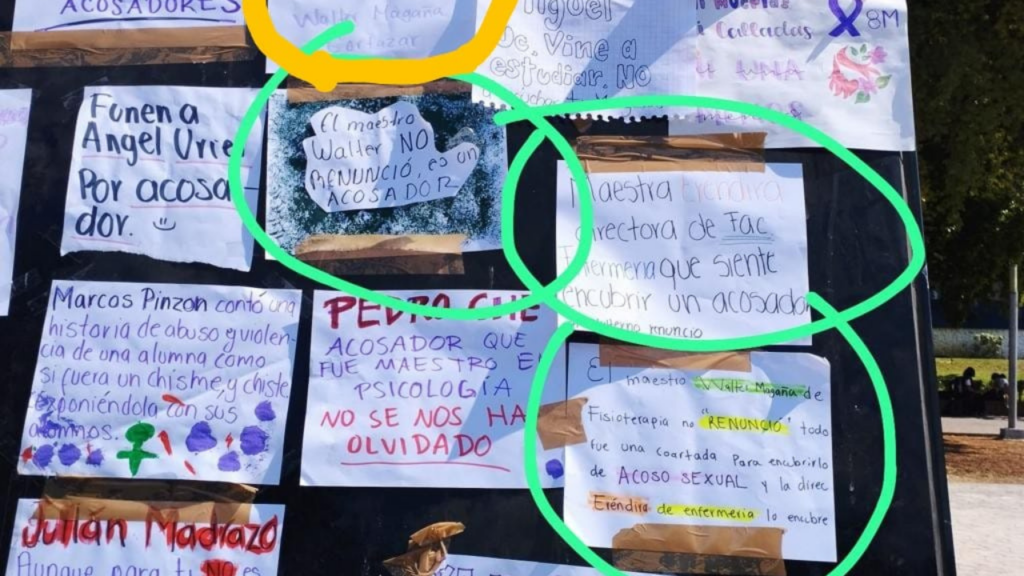 ACOSADORES
Walter Magaña
Cortazar
Miguel
Oc. Vine a
estudiar, NO
Calladas
8M
UNA
Funen a
Angel Urre
Por acosa-
dor.
El maestro
Walter NO
RENUNCIÓ, es un
ACOSADOR
Maestra Eréndira
directora de Fac
Enfermeria que siente
encubrir un acosador
no renuncio
Marcos Pinzon contó una
historia de abuso y violen-
cia de una alumna como
si fuera un chisme, y chiste
exponiéndola con sus
alumnos.
PEDRO CHE
ACOSADOR QUE
FUE MAESTRO E
PSICOLOGÍA
NO SE NOS HA
OLVIDADO
El maestro Walter Magaña de
Fisioterapia no "RENUNCIO" todo
fue una coartada para encubrirlo
de ACOSO SEXUAL y la direc
Eréndira de enfermeria lo encubre
Julian Madrazo
Aunque para ti NO es